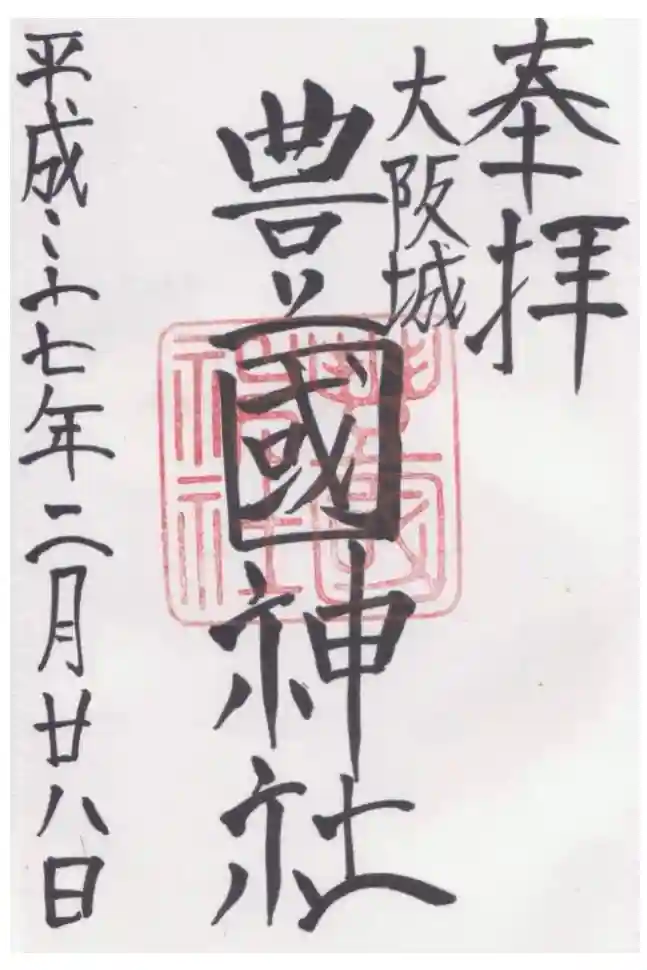 奉拝
大阪城
豊國神社
平成二十七年二月廿八日
豊國
神社